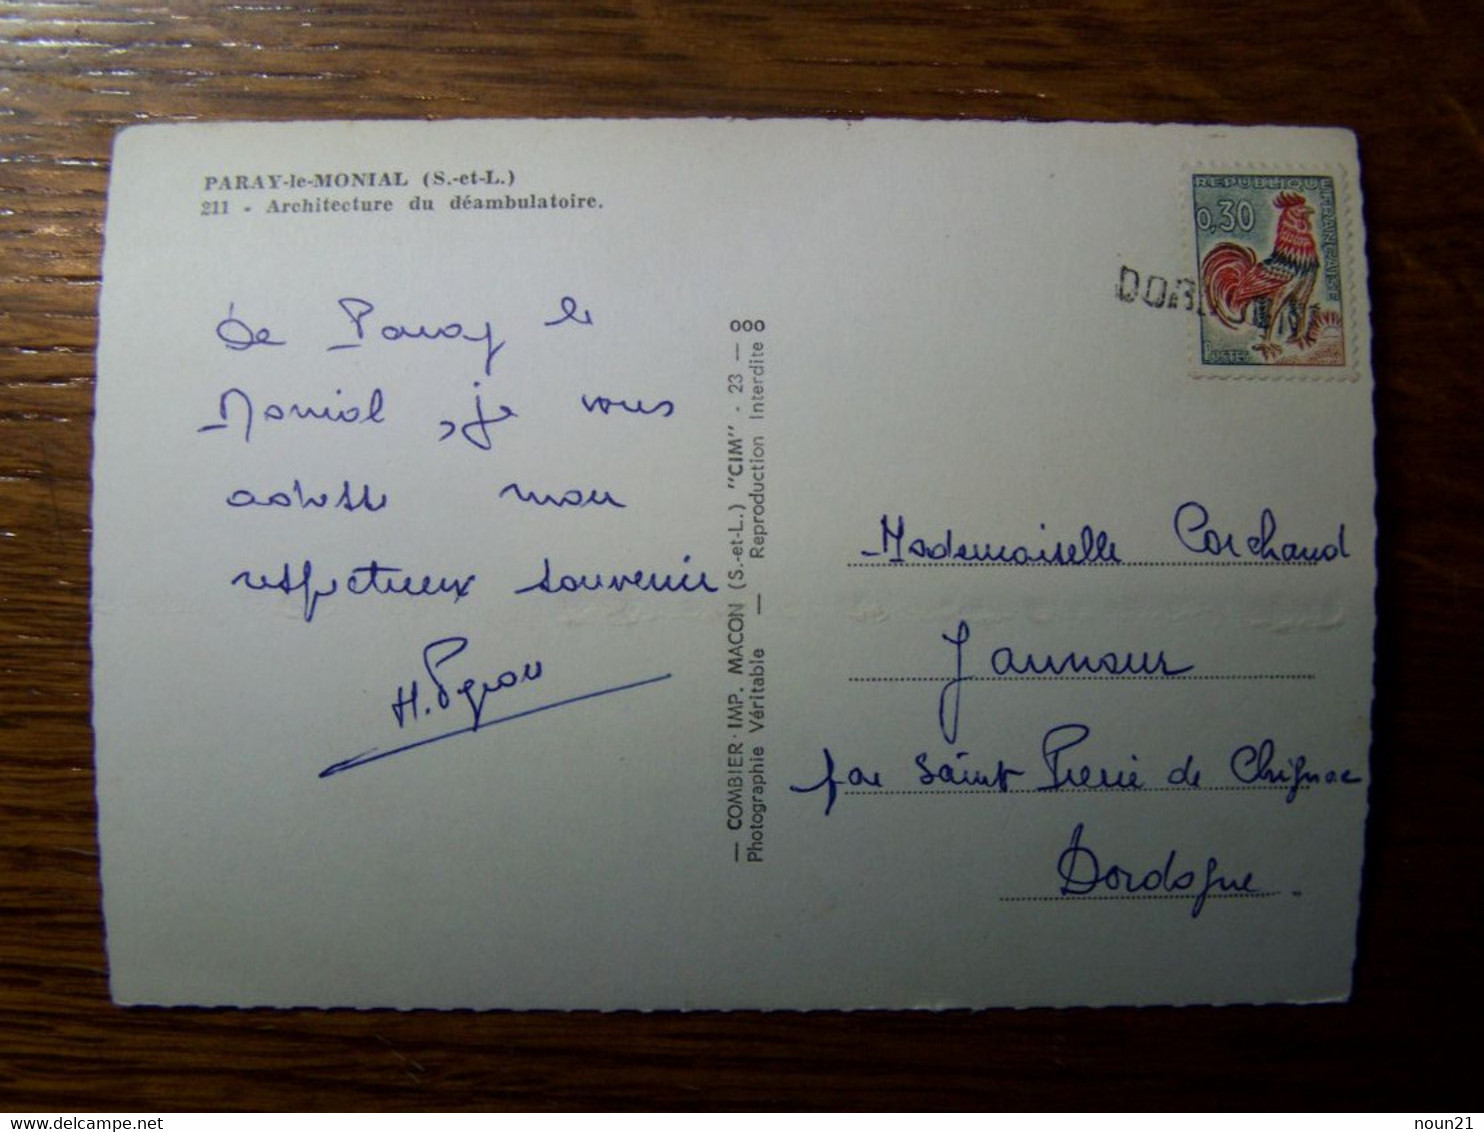 PARAY-le-MONIAL (S.-et-L.)
211 - Architecture du déambulatoire.
de Paray le
Monial, je vous
adresse mon
respectueux souvenir
— COMBIER · IMP. MACON (S.-et-L.) "CIM" - 23 — 000
Photographie Véritable — Reproduction Interdite
REPUBLIQUE FRANÇAISE
0,30
POSTES
Mademoiselle Corchaud
par Saint Pierre de Chignac
Dordogne.
noun21